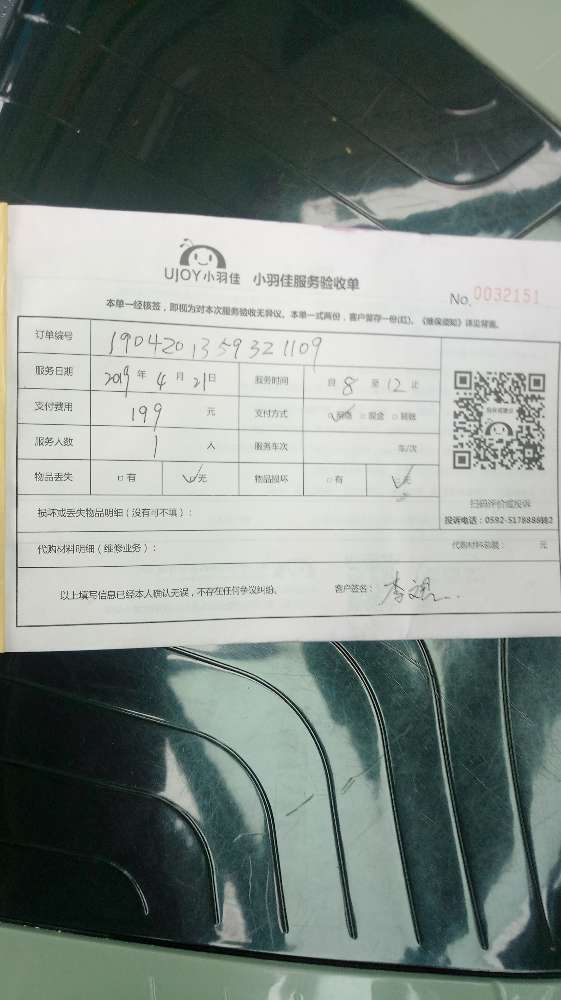 UJOY小羽佳 小羽佳服务验收单
No. 0032151
本单一经核签，即视为对本次服务验收无异议。本单一式两份，客户留存一份(红)。《维保须知》详见背面。
订单编号 1904201359321109
服务日期 2019 年 4 月 21 日 服务时间 自 8 至 12 止
支付费用 199 元 支付方式 现金 转账
服务人数 1 人 服务车次 车/次
物品丢失 □有 无 物品损坏 □有 无
扫码评价或投诉
损坏或丢失物品明细（没有可不填）：
投诉电话：0592-5178886转2
代购材料明细（维修业务）： 代购材料总额： 元
以上填写信息已经本人确认无误，不存在任何争议纠纷。 客户签名：李